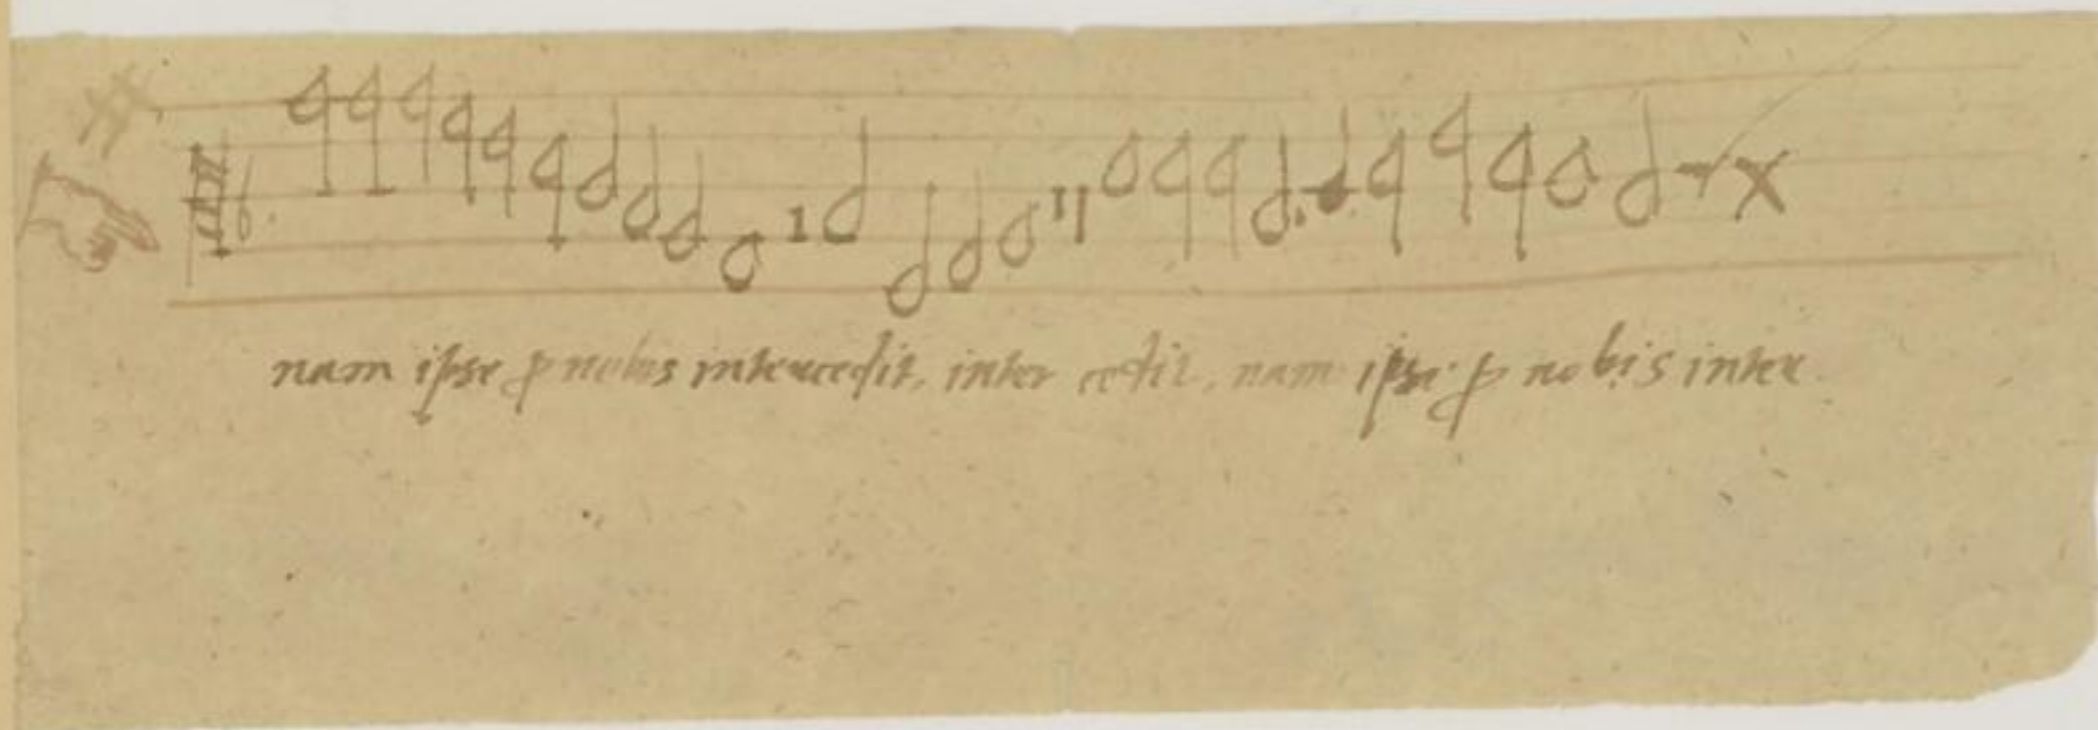 nam ipse ꝓ nobis intercedit, inter cedit, nam ipse ꝓ nobis inter